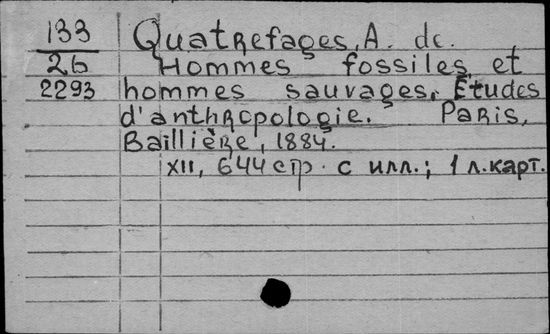 133 Quatrefages, A. de.
26 Hommes fossiles et
2293 hommes sauvages. Études
d'anthropologie. Paris,
Baillière, 1884.
XII, 644 стр. с илл.; 1 л. карт.